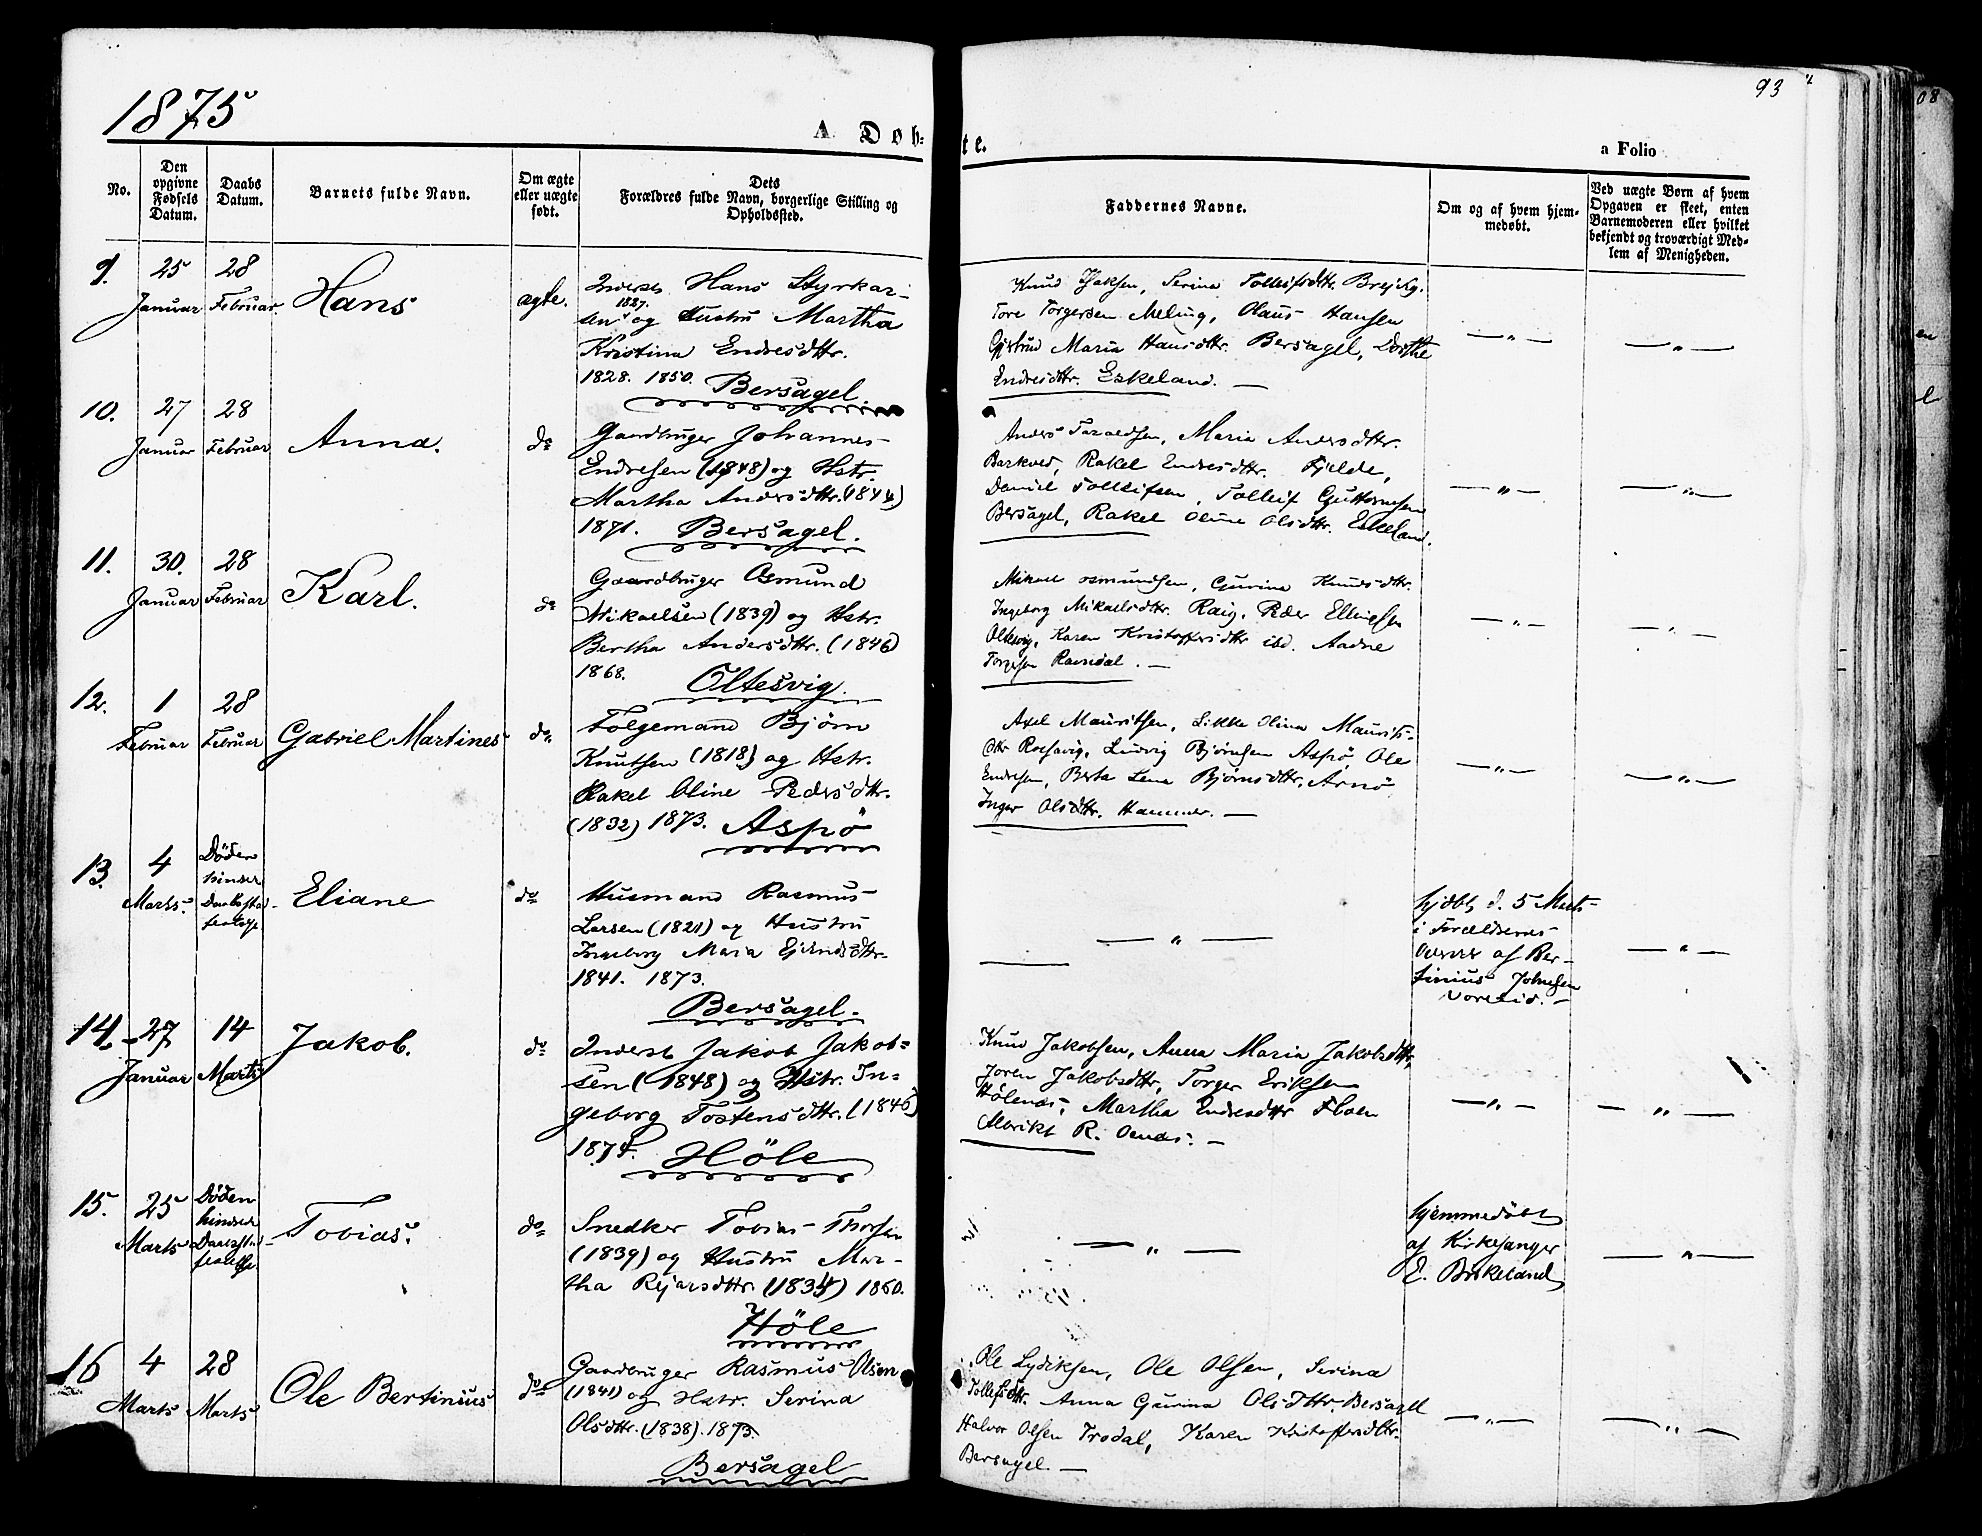 1875
93
A. Døb-
te.
a Folio
No.
Den
opgivne
Fødsels
Datum.
Daabs
Datum.
Barnets fulde Navn.
Om ægte
eller uægte
født.
Dets
Forældres fulde Navn, borgerlige Stilling og
Opholdssted.
Faddernes Navne.
Om og af hvem hjem-
medøbt.
Ved uægte Børn af hvem
Opgaven er skeet, enten
Barnemoderen eller hvilket
bekjendt og troværdigt Med-
lem af Menigheden.
9. 25 28
Januar Februar
Hans
ægte.
Inderst Hans Styrkar-
1827.
sen og Hustru Martha
Kristina Endresdttr.
1828. 1850. Bersagel
Serina Tollefsdttr.
Tore Torgersen Meling, Olaus Hansen
Maria Hansdttr. Bersagel, Dorthe
Endresdttr. Eskeland. —
— " —
— " —
10. 27 28
Januar Februar
Anna.
do
Gaardbruger Johannes
Endresen (1848) og Hstr.
Martha Andersdttr. (1844)
1871. Bersagel.
Anders Taraldsen, Maria Andersdttr.
Barkved, Rakel Endresdttr. Fjelde,
Daniel Tollefsen, Tollef Guttormsen
Bersagel, Rakel Oline Olsdttr. Eskeland.
— " —
— " —
11. 30. 28
Januar Februar
Karl.
do
Gaardbruger Osmund
Mikaelsen (1839) og Hstr.
Bertha Andersdttr. (1846)
1868. Oltesvig.
Mikael Osmundsen, Gurina Knudsdttr.
Ingeborg Mikaelsdttr. Raig, Peder Ellingsen
Oltesvig, Karen Kristoffersdttr ibd. Aadne
Torgesen Ramsdal. —
— " —
— " —
12. 1 28
Februar Februar
Gabriel Martines
do.
Folgemand Bjørn
Knutsen (1818) og Hstr.
Rakel Oline Pedersdttr.
(1832) 1873. Aspö
Axel Mauritsen, Sikke Olina Maurits-
dttr Rossavig, Ludvig Bjørnsen Aspö, Ole
Endresen, Berta Lena Bjørnsdttr. Arnö
Inger Olsdttr. Hammer. —
— " —
— " —
13. 4
Marts.
Døden
hindret
Daabsstad-
festelse
Eliane
do
Husmand Rasmus
Larsen (1821) og Hustru
Ingeborg Maria Ejvindsdttr.
1841. 1873.
Bersagel.
— " —
hjdbt d. 5 Marts
i Forældrenes
af Ber-
tinius Johnsen
— " —
14. 27 14
Januar Marts
Jakob.
do
Inderst Jakob Jakob-
sen (1848) og Hstr. In-
geborg Tostensdttr. (1846)
1874. Höle
Knud Jakobsen, Anna Maria Jakobsdttr.
Joren Jakobsdttr, Torger Eriksen
Hølenes, Martha Endresdttr
R. —
— " —
— " —
15. 25
Marts
Døden
hindret
Daabsstad-
festelse.
Tobias.
do
Snedker Tobias Thorsen
(1839) og Hustru Mar-
tha Rejarsdttr. (1834) 1860.
Höle
— " —
hjemmedöbt
af Kirkesanger
E. Birkeland
— " —
16 4 28
Marts Marts
Ole Bertinius
do
Gaardbruger Rasmus Olsen
(1841) og Hstr. Serina
Olsdttr. (1838). 1873.
Bersagel
Ole Lydiksen, Ole Olsen, Serina
Tollefsdttr. Anna Gurina Olsdttr. Bersagel
Halvor Olsen Trodal, Karen Kristoffersdttr.
Bersagel. —
— " —
— " —